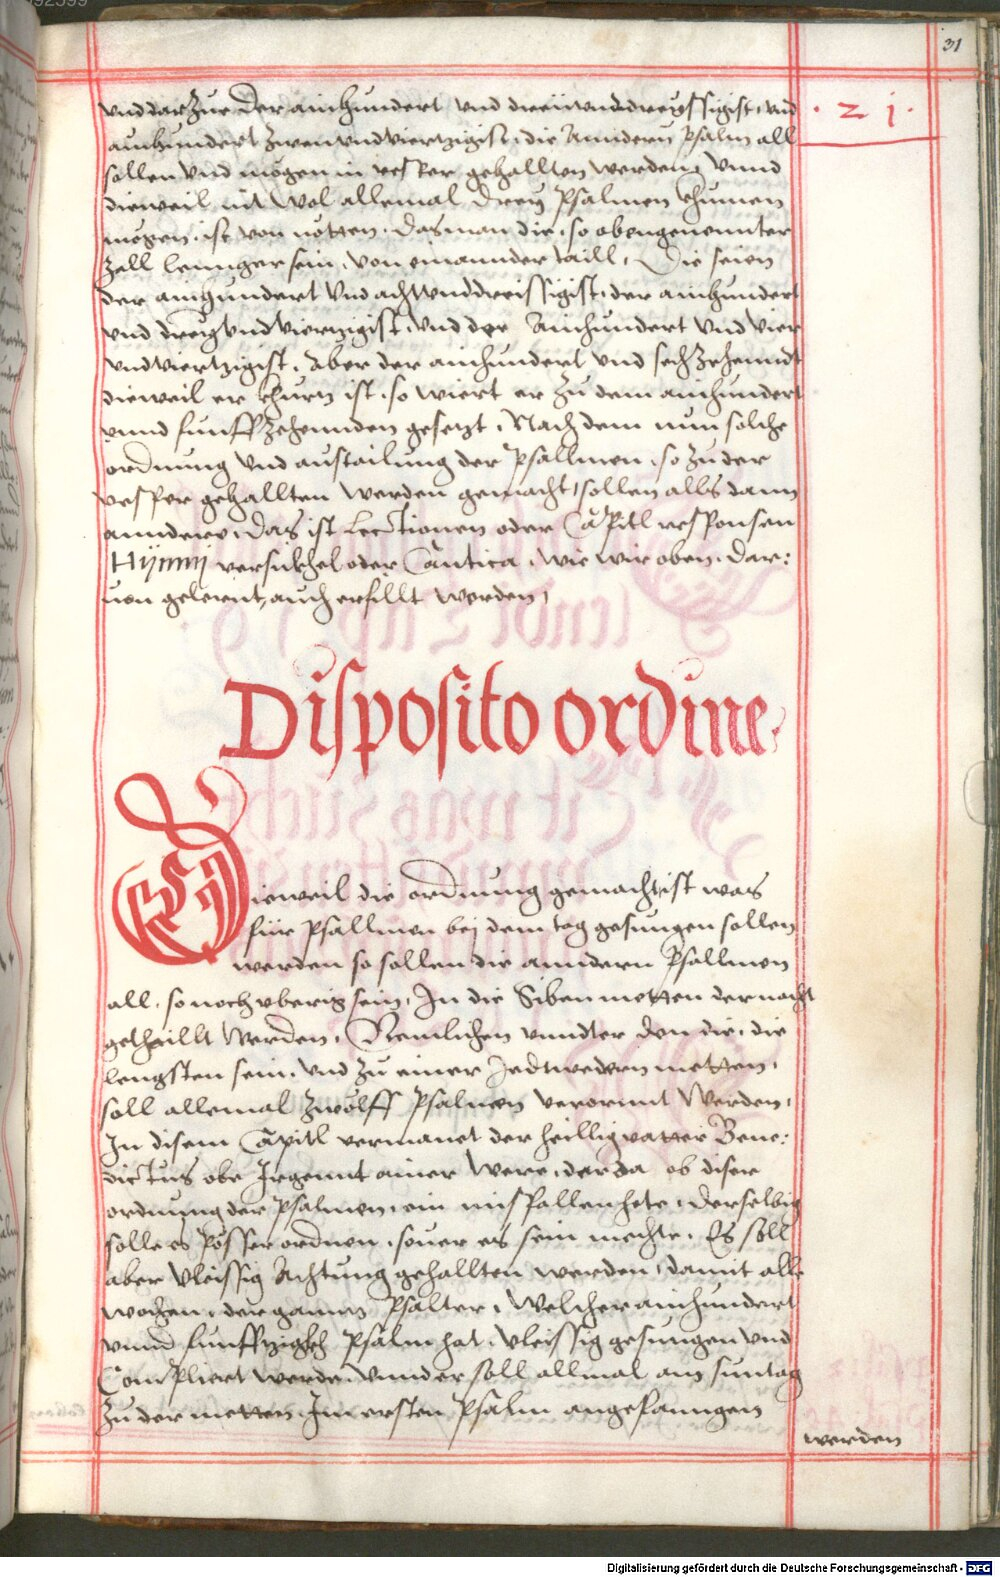 31
· 2 j ·
vnd darzue der ainhundert vnd dreiunddreyssigist, vnd
ainhundert zwenundviertzigist, die Anndern Psalm all
sollen vnd mögen in vesper gehallten werden, Vnnd
dieweil nit wol allemal drey Psalmen khumen
mögen, ist von nötten, das man die, so obengenennter
Zall lennger sein, von einannder taill, Die seien
der ainhundert vnd achtunddreissigist, der ainhundert
vnd dreyundviertzigist, vnd der Ainhundert vnd vier
undviertzigist, Aber der ainhundert vnd sechzehenndt
dieweil er khurtz ist, so wiert er zu dem ainhundert
vnnd funffzehennden gesetzt, Nach dem nun solche
ordnung vnd austailung der Psallmen, so zu der
vesper gehallten werden gemacht, sollen alls dann
anndere, das ist Lectionen oder Capitl responsen
Hÿmnj versickhel oder Cantica, wie wir oben, dar:
uon gelernt, auch erfillt werden,
Disposito ordine.
Dieweil die ordnung gemacht ist was
für Psallmen bei dem tag gesungen sollen
werden so sollen die anndern Psallmen
all, so noch vberig sein, In die Siben metten der nacht
gethaillt werden, Nemlichen vnndter den die, die
lengsten sein, vnd zu einer Jedtwedern metten,
soll allemal zwölff Psalmen verornnt werden,
In disem Capitl vermanet der heillig vatter Bene:
dictus obe Jrgennt ainer were, der da ob diser
ordnung der Psalmen, ein misfallen hete, derselbig
solle es pösser ordnen, souer es sein mechte, Es soll
aber vleissig Achtung gehallten werden, damit alle
wochen, der gannz Psalter, welcher ainhundert
vnnd funfftzigkh Psalm hat, vleissig gesungen vnd
Compliert werde, vnnd er soll allmal am suntag
zu der metten, Im ersten Psalm angefanngen
werden
Digitalisierung gefördert durch die Deutsche Forschungsgemeinschaft - DFG